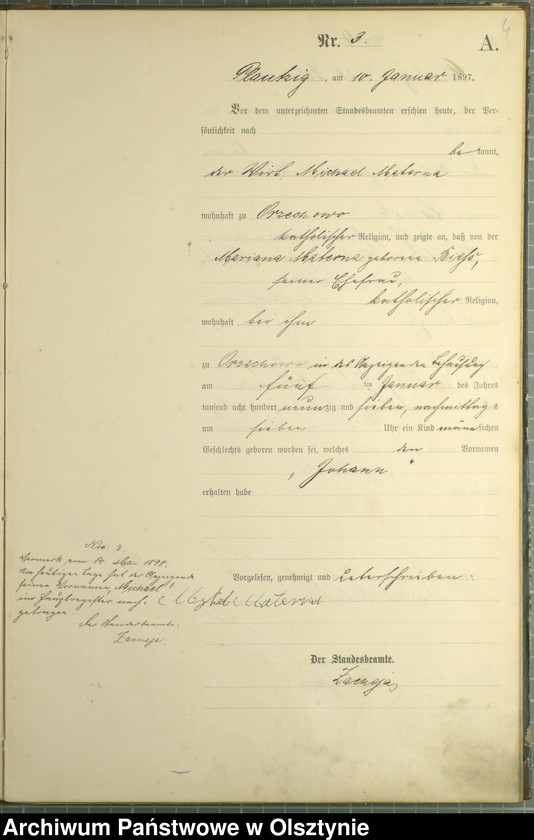 4
Nr. 3. A.
Plautzig, am 10. Januar 1897.
Vor dem unterzeichneten Standesbeamten erschien heute, der Per-
sönlichkeit nach
be kannt,
der Wirt Michael Materna
wohnhaft zu Orzechowo
katholischer Religion, und zeigte an, daß von der
Mariana Materna geborene
seiner Ehefrau,
katholischer Religion,
wohnhaft bei ihm
zu Orzechowo in des Anzeigenden Behausung
am fünf ten Januar des Jahres
tausend acht hundert neunzig und sieben, nachmittags
um sieben Uhr ein Kind männlichen
Geschlechts geboren worden sei, welches den Vornamen
„Johann“
erhalten habe
Vorgelesen, genehmigt und unterschrieben:
Materna
Der Standesbeamte.
Nro. 3
Vermerk vom 14. 1898.
Am heutigen Tage hat der Anzeigende
seinen Vornamen „Michael“
im Hauptregister nach-
getragen
Der Standesbeamte:
Archiwum Państwowe w Olsztynie